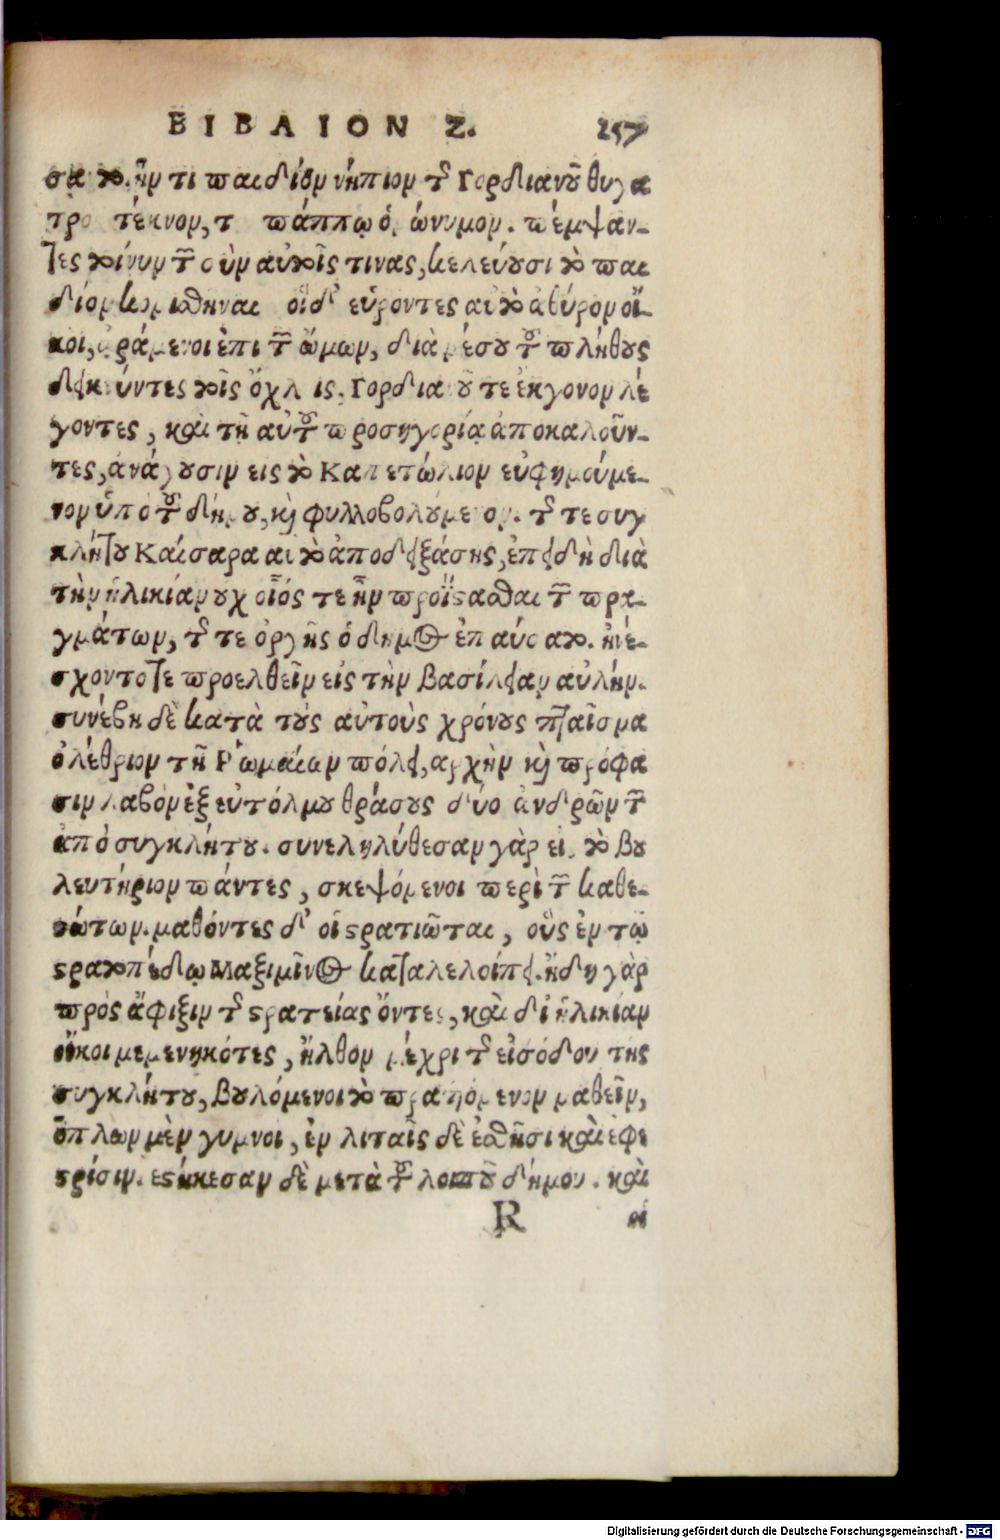 ΒΙΒΛΙΟΝ Ζ. 257
σατο. ἦν τι παιδίον νήπιον τῆς Γορδιανοῦ θυγα
τρὸ τέκνον, τ πάππῳ ὁμώνυμον. πέμψαν-
τες τοίνυν τῶν σὺν αὐτοῖς τινας, κελεύουσι τὸ παι
δίον κομισθῆναι οἱ δ' εὑρόντες αὐτὸ ἀθύρον οἴ-
κοι, ἀράμενοι ἐπὶ τῶν ὤμων, διὰ μέσου τοῦ πλήθους
δεικνύντες τοῖς ὄχλοις, Γορδιανοῦ τε ἔκγονον λέ
γοντες, καὶ τῇ αὐτοῦ προσηγορίᾳ ἀποκαλοῦν-
τες, ἀνάγουσιν εις τὸ Καπετώλιον εὐφημούμε-
νον ὑπὸ τοῦ δήμου, καὶ φυλλοβολούμενον. τῆς τε συγ
κλήτου Καίσαρα αὐτὸ ἀποδειξάσης, ἐπειδὴ διὰ
τὴν ἡλικίαν ουχ οἷός τε ἦν προΐστασθαι τῶν πρα-
γμάτων, τῆς τε ὀργῆς ὁ δῆμος ἐπαύσατο. ἠνέ-
σχοντό τε προελθεῖν εἰς τὴν βασίλειαν αὐλήν.
συνέβη δὲ κατὰ τοὺς αὐτοὺς χρόνους πταῖσμα
ὀλέθριον τῇ Ῥωμαίων πόλει, αρχὴν καὶ πρόφα
σιν λαβὸν ἐξ εὐτόλμου θράσους δύο ἀνδρῶν τῶν
ἀπὸ συγκλήτου. συνεληλύθεσαν γὰρ εἰς τὸ βου
λευτήριον πάντες, σκεψόμενοι περὶ τῶν καθε-
στώτων. μαθόντες δ' οἱ στρατιῶται, οὓς ἐν τῷ
στρατοπέδῳ Μαξιμῖνος καταλελοίπει. ἤδη γὰρ
πρὸς ἄφιξιν τῆς στρατείας ὄντες, καὶ δι ἡλικίαν
οἴκοι μεμενηκότες, ἦλθον μέχρι τῆς εἰσόδου τῆς
συγκλήτου, βουλόμενοι τὸ πραττόμενον μαθεῖν,
ὅπλων μὲν γυμνοι, ἐν λιταῖς δὲ ἐσθῆσι καὶ ἐφε
στρίσιν. εστήκεσαν δὲ μετὰ τοῦ λοιποῦ δήμου. καὶ
R οἱ
Digitalisierung gefördert durch die Deutsche Forschungsgemeinschaft - DFG